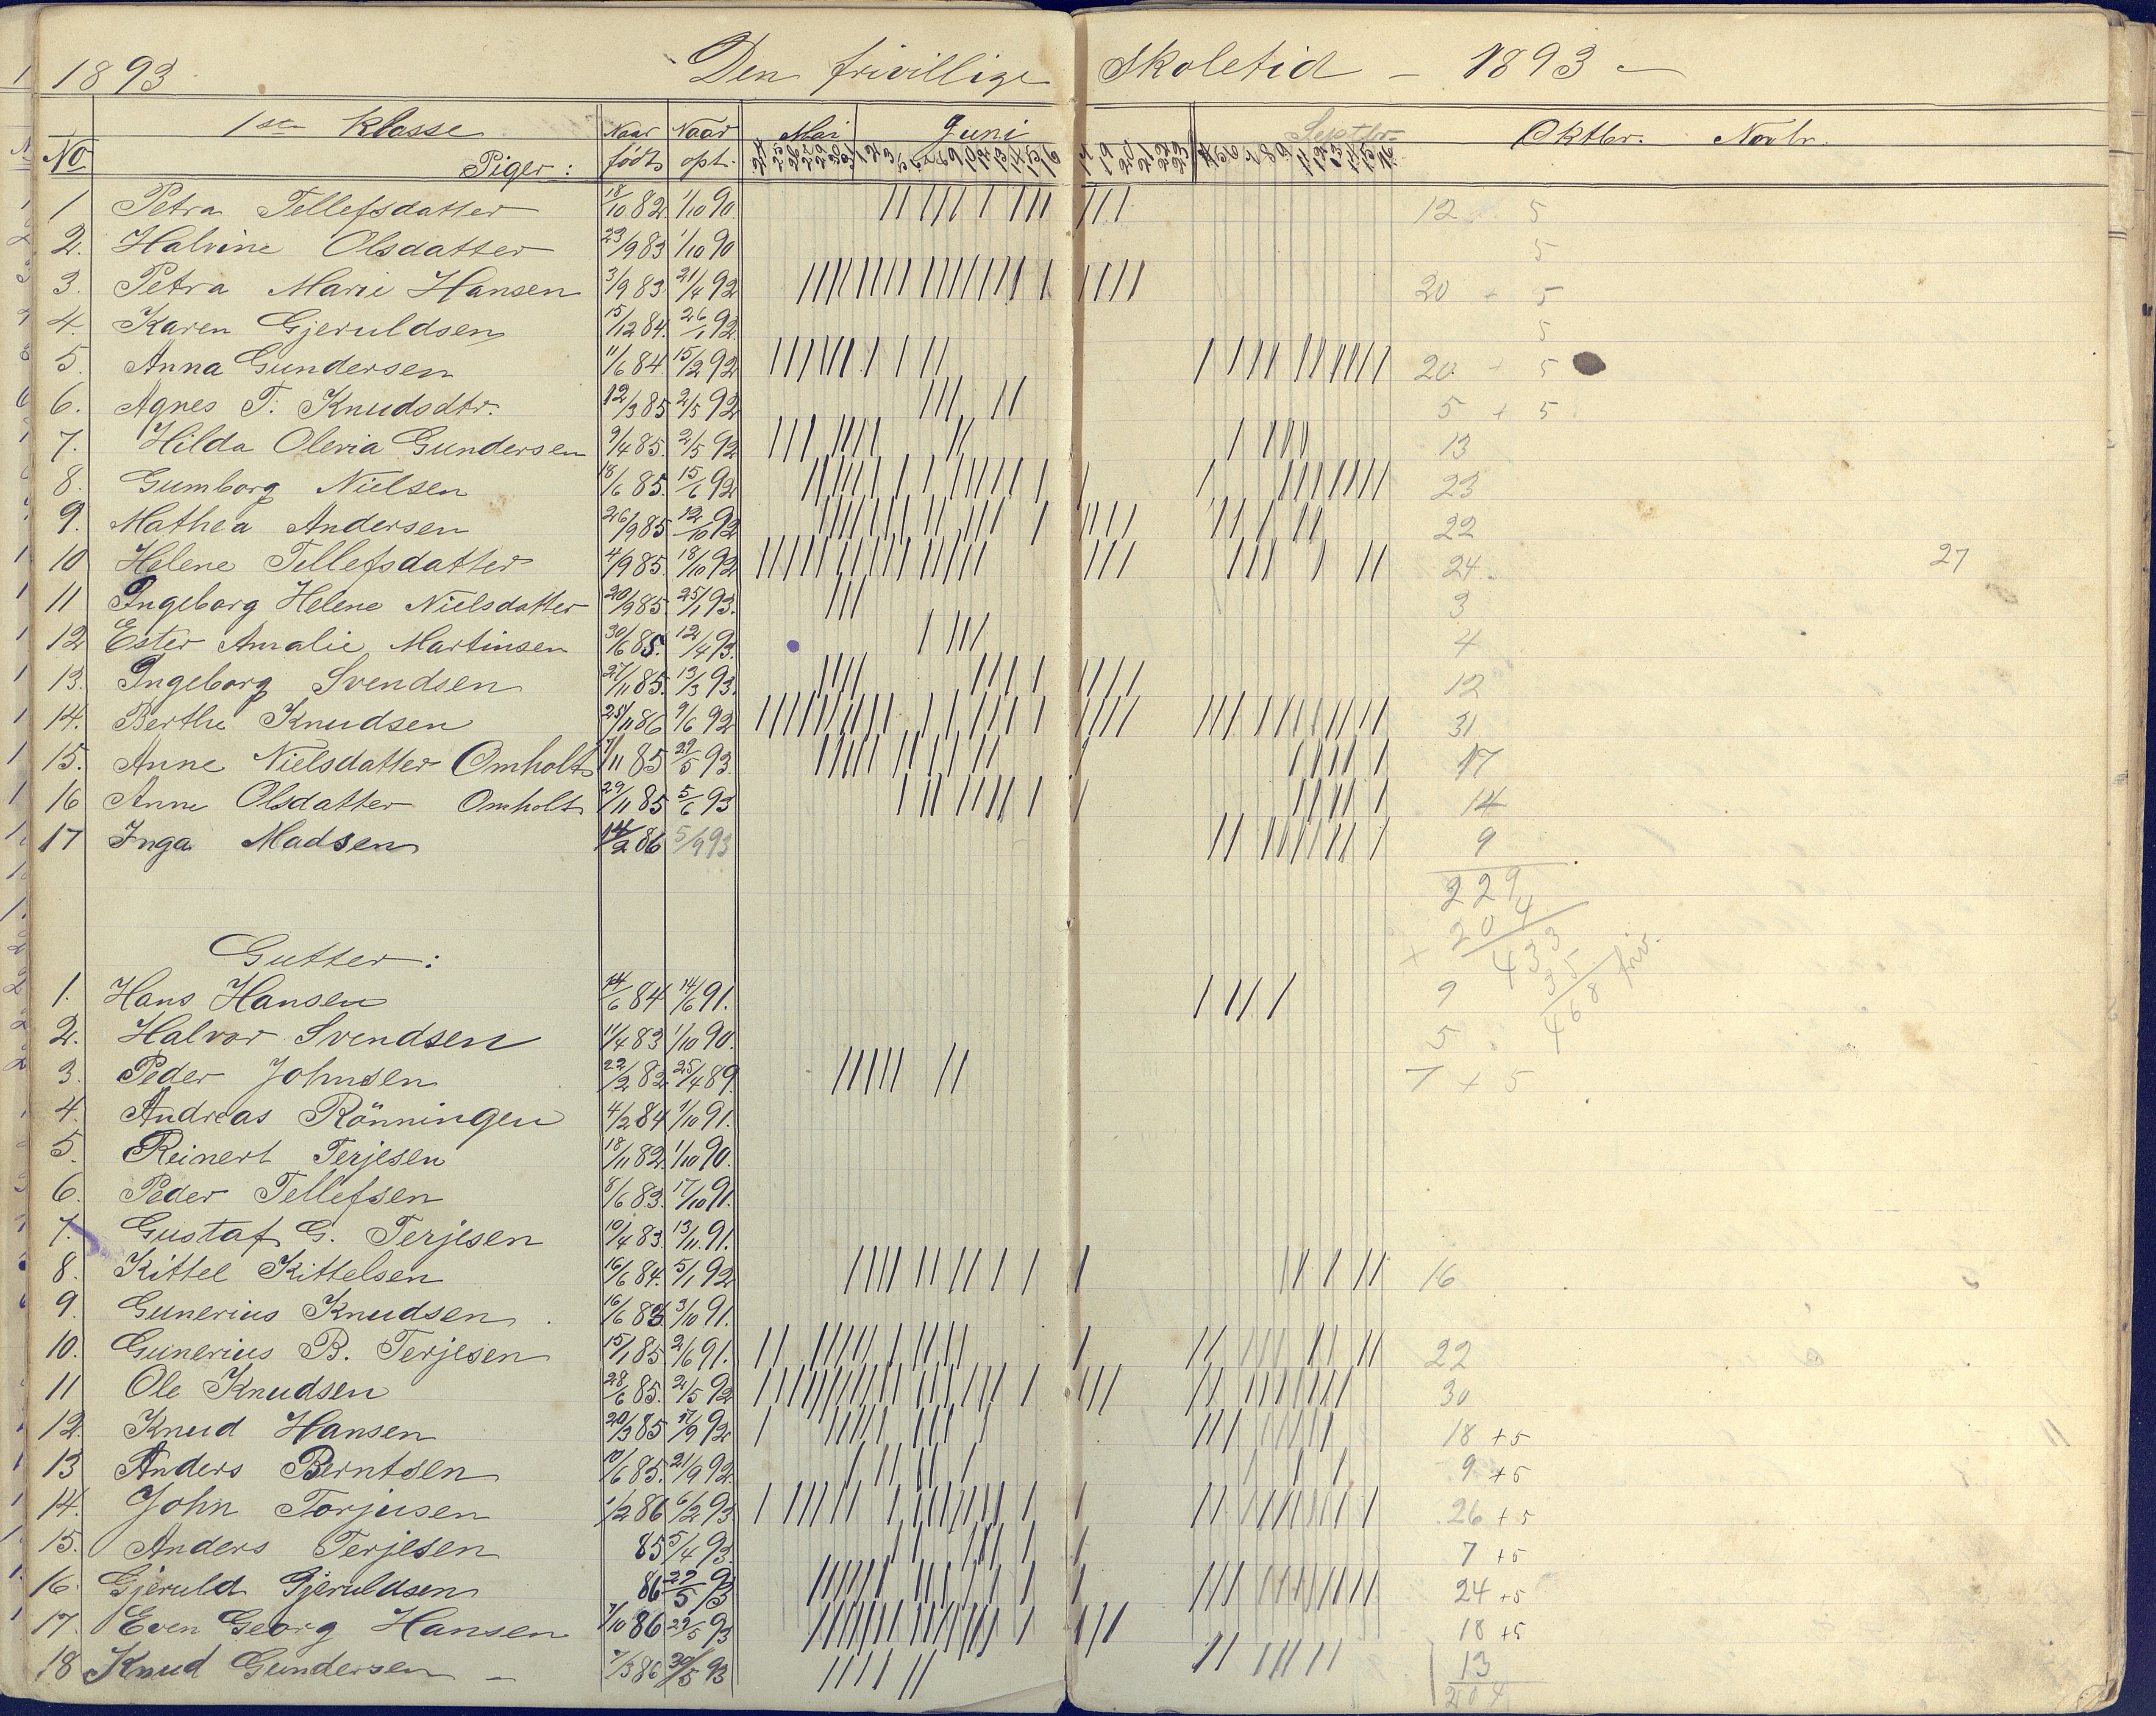 1893 Den frivillige Skoletid – 1893 –
1ste Klasse Naar Naar Mai Juni Septbr. Oktbr. Novbr.
No. Piger: født opt.
1 Petra Tellefsdatter 18/10 82 1/10 90 12 5
2. Halvine Olsdatter 23/9 83 1/10 90 5
3. Petra Marie Hansen 3/9 83 21/4 92 20 + 5
4. Karen Gjeruldsen 15/12 84. 26/1 92. 5
5. Anna Gundersen 11/6 84. 15/2 92 20 + 5
6. Agnes T. Knudsdtr. 12/3 85 2/5 92 5 + 5
7. Hilda Olevia Gundersen 9/4 85. 2/5 92 13
8. Gumborg Nielsen 18/6 85. 15/6 92 23
9. Mathea Andersen 26/9 85 12/10 92 22
10 Helene Tellefsdatter 4/9 85. 18/10 92 24 27
11 Ingeborg Helene Nielsdatter 20/9 85. 25/1 93. 3
12 Ester Amalie Martinsen 30/6 85. 12/4 93. 4
13. Ingeborg Svendsen 27/11 85. 13/3 93. 12
14. Berthe Knudsen 25/11 86 9/6 92 31
15. Anne Nielsdatter Omholt 7/11 85 29/5 93. 17
16 Anne Olsdatter Omholt 29/11 85 5/6 93 14
17 Inga Madsen 14/2 86 5/9 93 9
229
+ 204
433
35
468 friv.
Gutter:
1. Hans Hansen 14/6 84 14/6 91. 9
2. Halvor Svendsen 11/4 83 1/10 90. 5
3. Peder Johnsen 22/2 82 25/4 89. 7 + 5
4. Andreas Rönningen 4/2 84 1/10 91.
5. Reinert Terjesen 18/11 82. 1/10 90.
6. Peder Tellefsen 8/6 83. 17/10 91.
7. Gustaf G. Terjesen 10/4 83. 13/11 91.
8. Kittel Kittelsen 16/6 84. 5/1 92 16
9. Gunerius Knudsen 16/6 83 3/10 91.
10. Gunerius B. Terjesen 15/1 85 2/6 91. 22
11 Ole Knudsen 28/6 85. 2/5 92 30
12. Knud Hansen 20/3 85 17/9 92 18 +5
13 Anders Berntsen 10/6 85. 21/9 92. 9 +5
14. John Torjusen 1/2 86 6/2 93 26 + 5
15. Anders Terjesen 85 5/4 93. 7 +5
16. Gjeruld Gjeruldsen 86 29/5 93 24 +5
17. Even Georg Hansen 7/10 86 29/5 93 18 +5
18 Knud Gundersen – 7/3 86 30/5 93 13
204